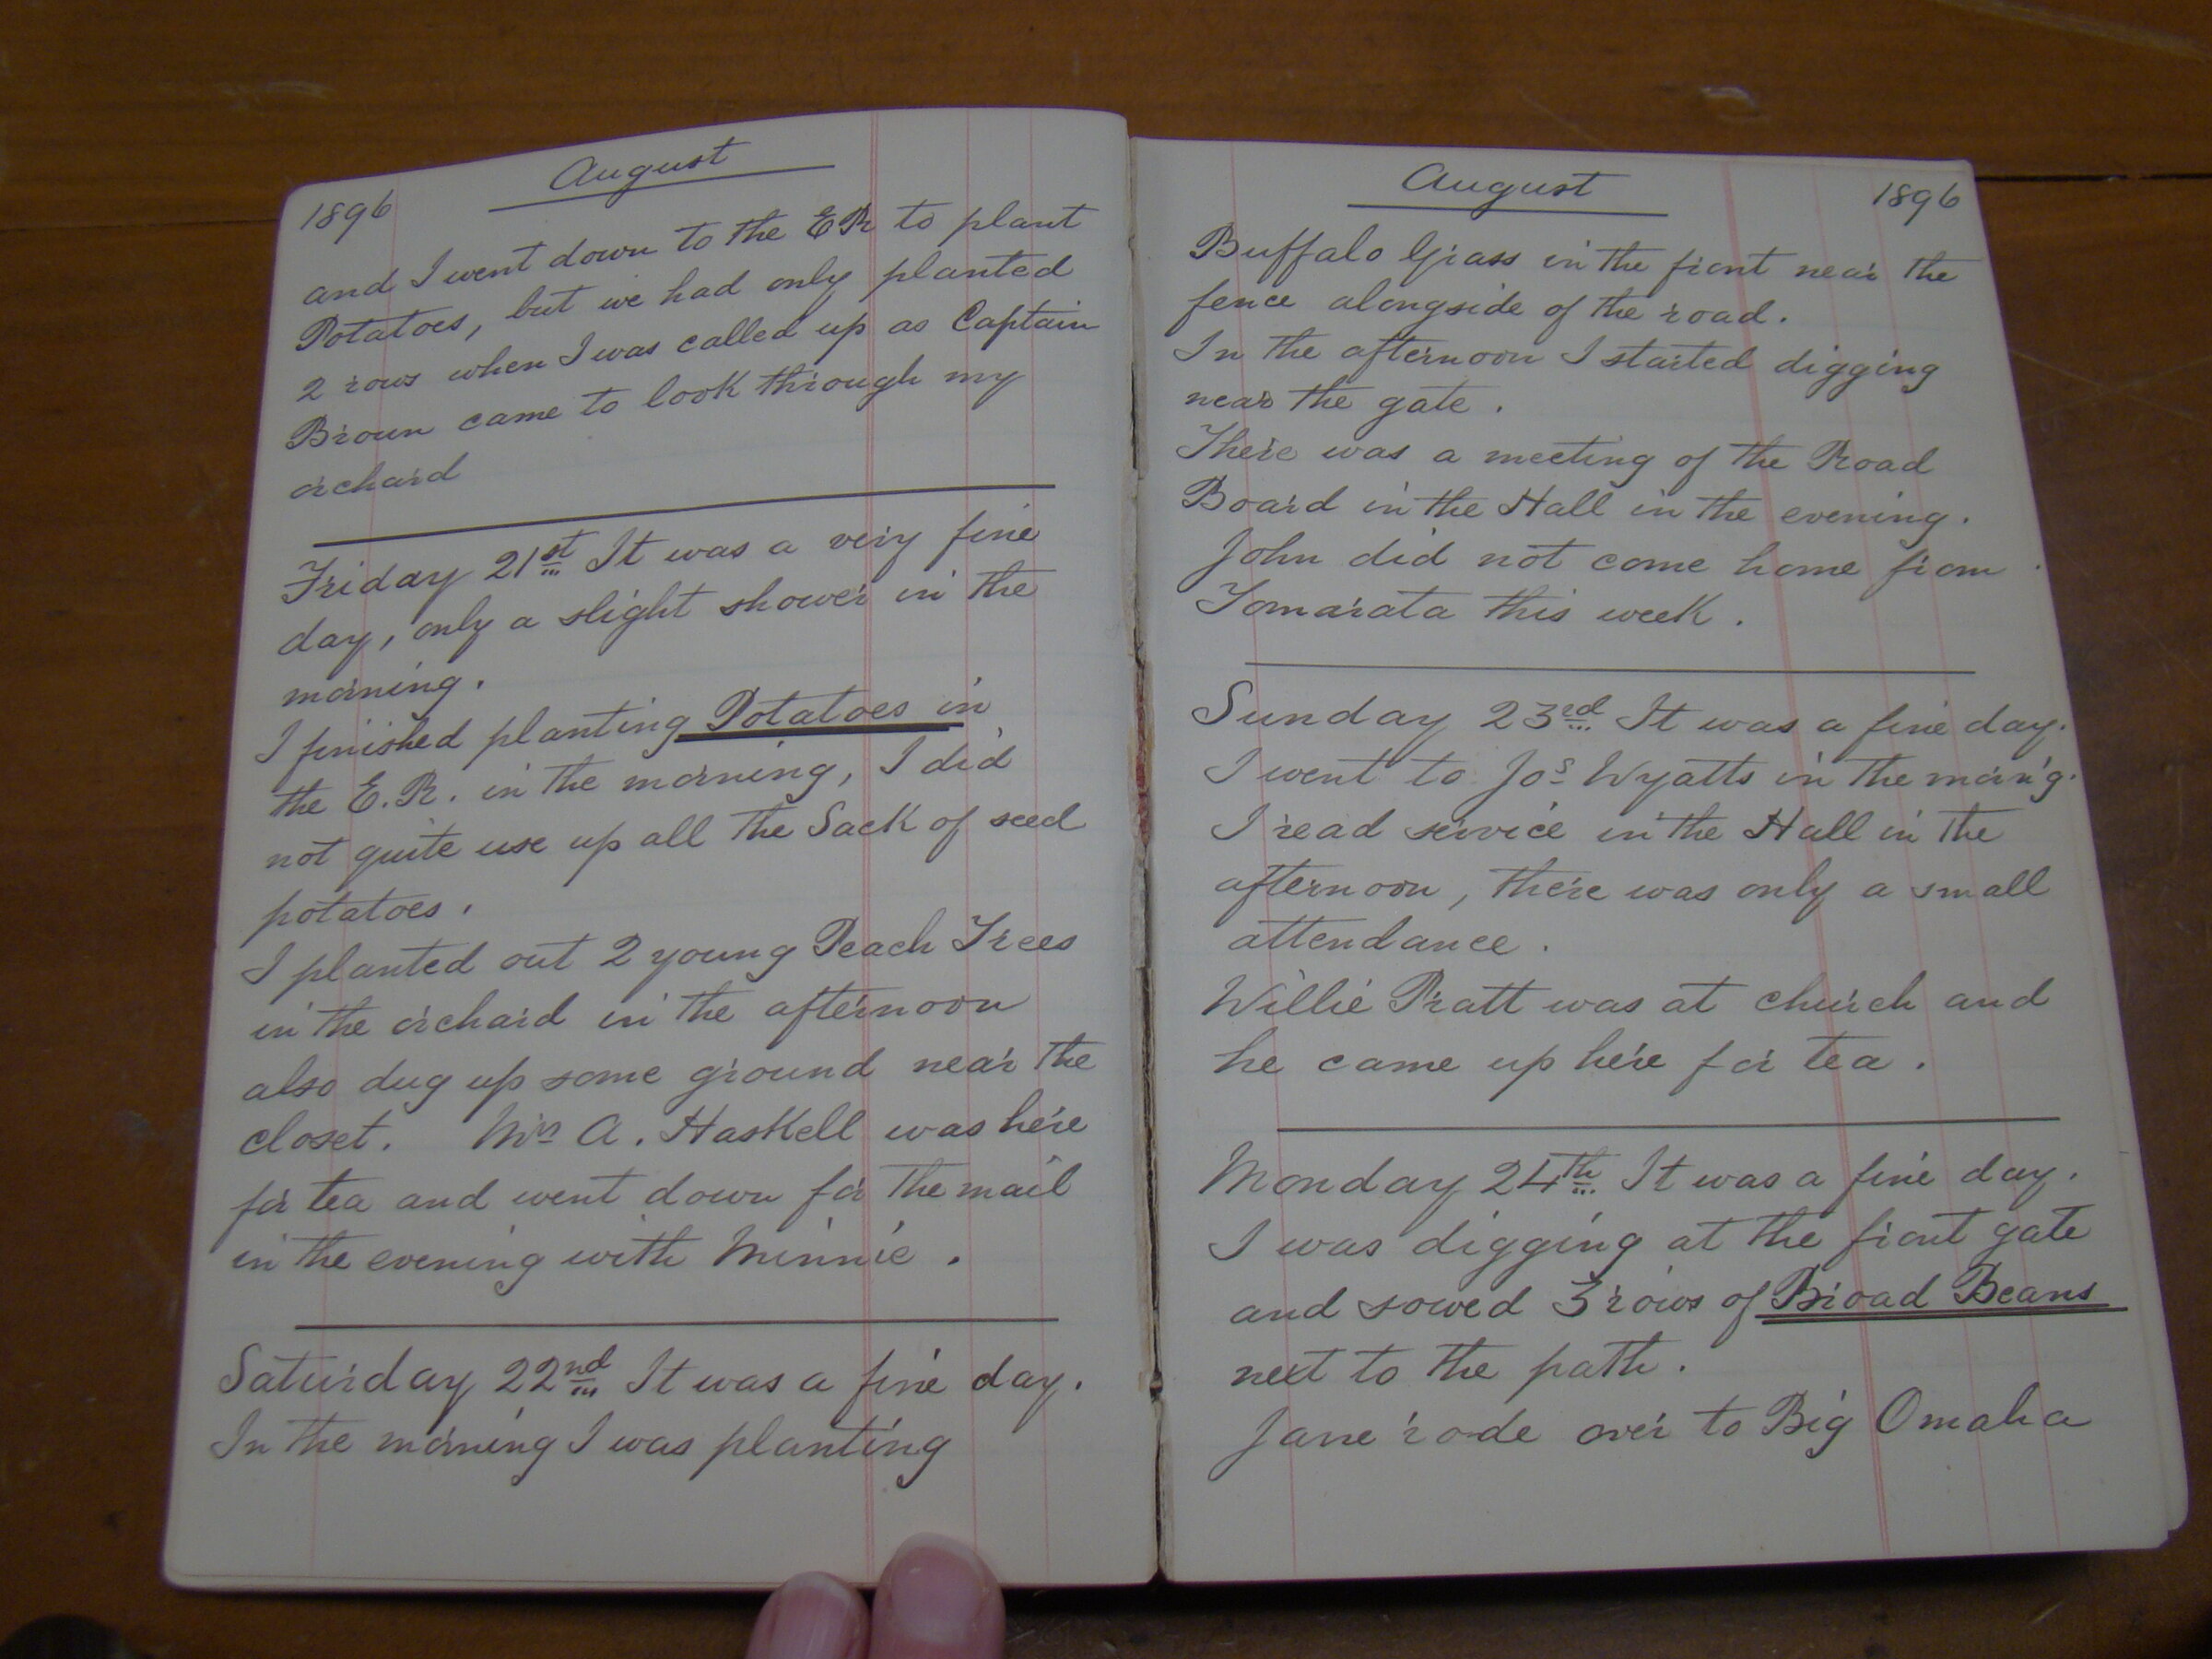 August
1896
and I went down to the ER to plant
Potatoes, but we had only planted
2 rows when I was called up as Captain
Broun came to look through my
orchard
Friday 21st It was a very fine
day, only a slight shower in the
morning.
I finished planting Potatoes in
the E.R. in the morning, I did
not quite use up all the Sack of seed
potatoes.
I planted out 2 young Peach Trees
in the orchard in the afternoon
also dug up some ground near the
closet. Mrs A. Haskell was here
for tea and went down for the mail
in the evening with Minnie.
Saturday 22nd It was a fine day.
In the morning I was planting
August
1896
Buffalo Grass in the front near the
fence alongside of the road.
In the afternoon I started digging
near the gate.
There was a meeting of the Road
Board in the Hall in the evening.
John did not come home from
Tomarata this week.
Sunday 23rd It was a fine day.
I went to Jos Wyatts in the morn'g.
I read service in the Hall in the
afternoon, there was only a small
attendance.
Willie Pratt was at church and
he came up here for tea.
Monday 24th It was a fine day.
I was digging at the front gate
and sowed 3 rows of Broad Beans
next to the path.
Jane rode over to Big Omaha